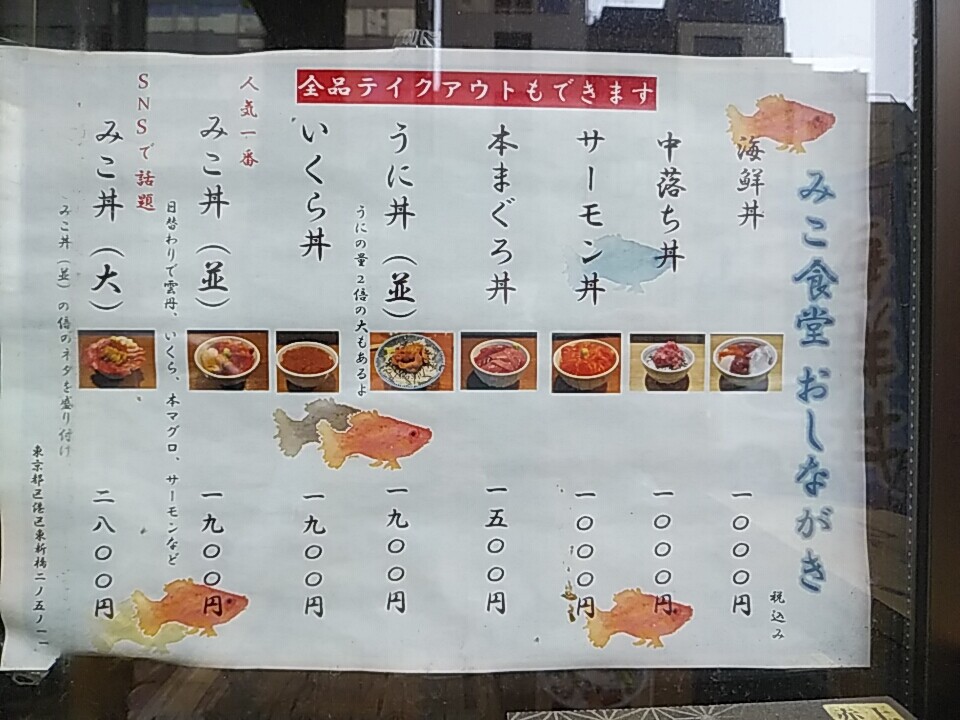 全品テイクアウトもできます
みこ食堂 おしながき
税込み
海鮮丼
一〇〇〇円
中落ち丼
一〇〇〇円
サーモン丼
一〇〇〇円
本まぐろ丼
一五〇〇円
うに丼（並）
一九〇〇円
うにの量2倍の大もあるよ
いくら丼
一九〇〇円
人気一番
みこ丼（並）
一九〇〇円
日替わりで雲丹、いくら、本マグロ、サーモンなど
SNSで話題
みこ丼（大）
二八〇〇円
みこ丼（並）の倍のネタを盛り付け
東京都区港区東新橋二ノ五ノ一一